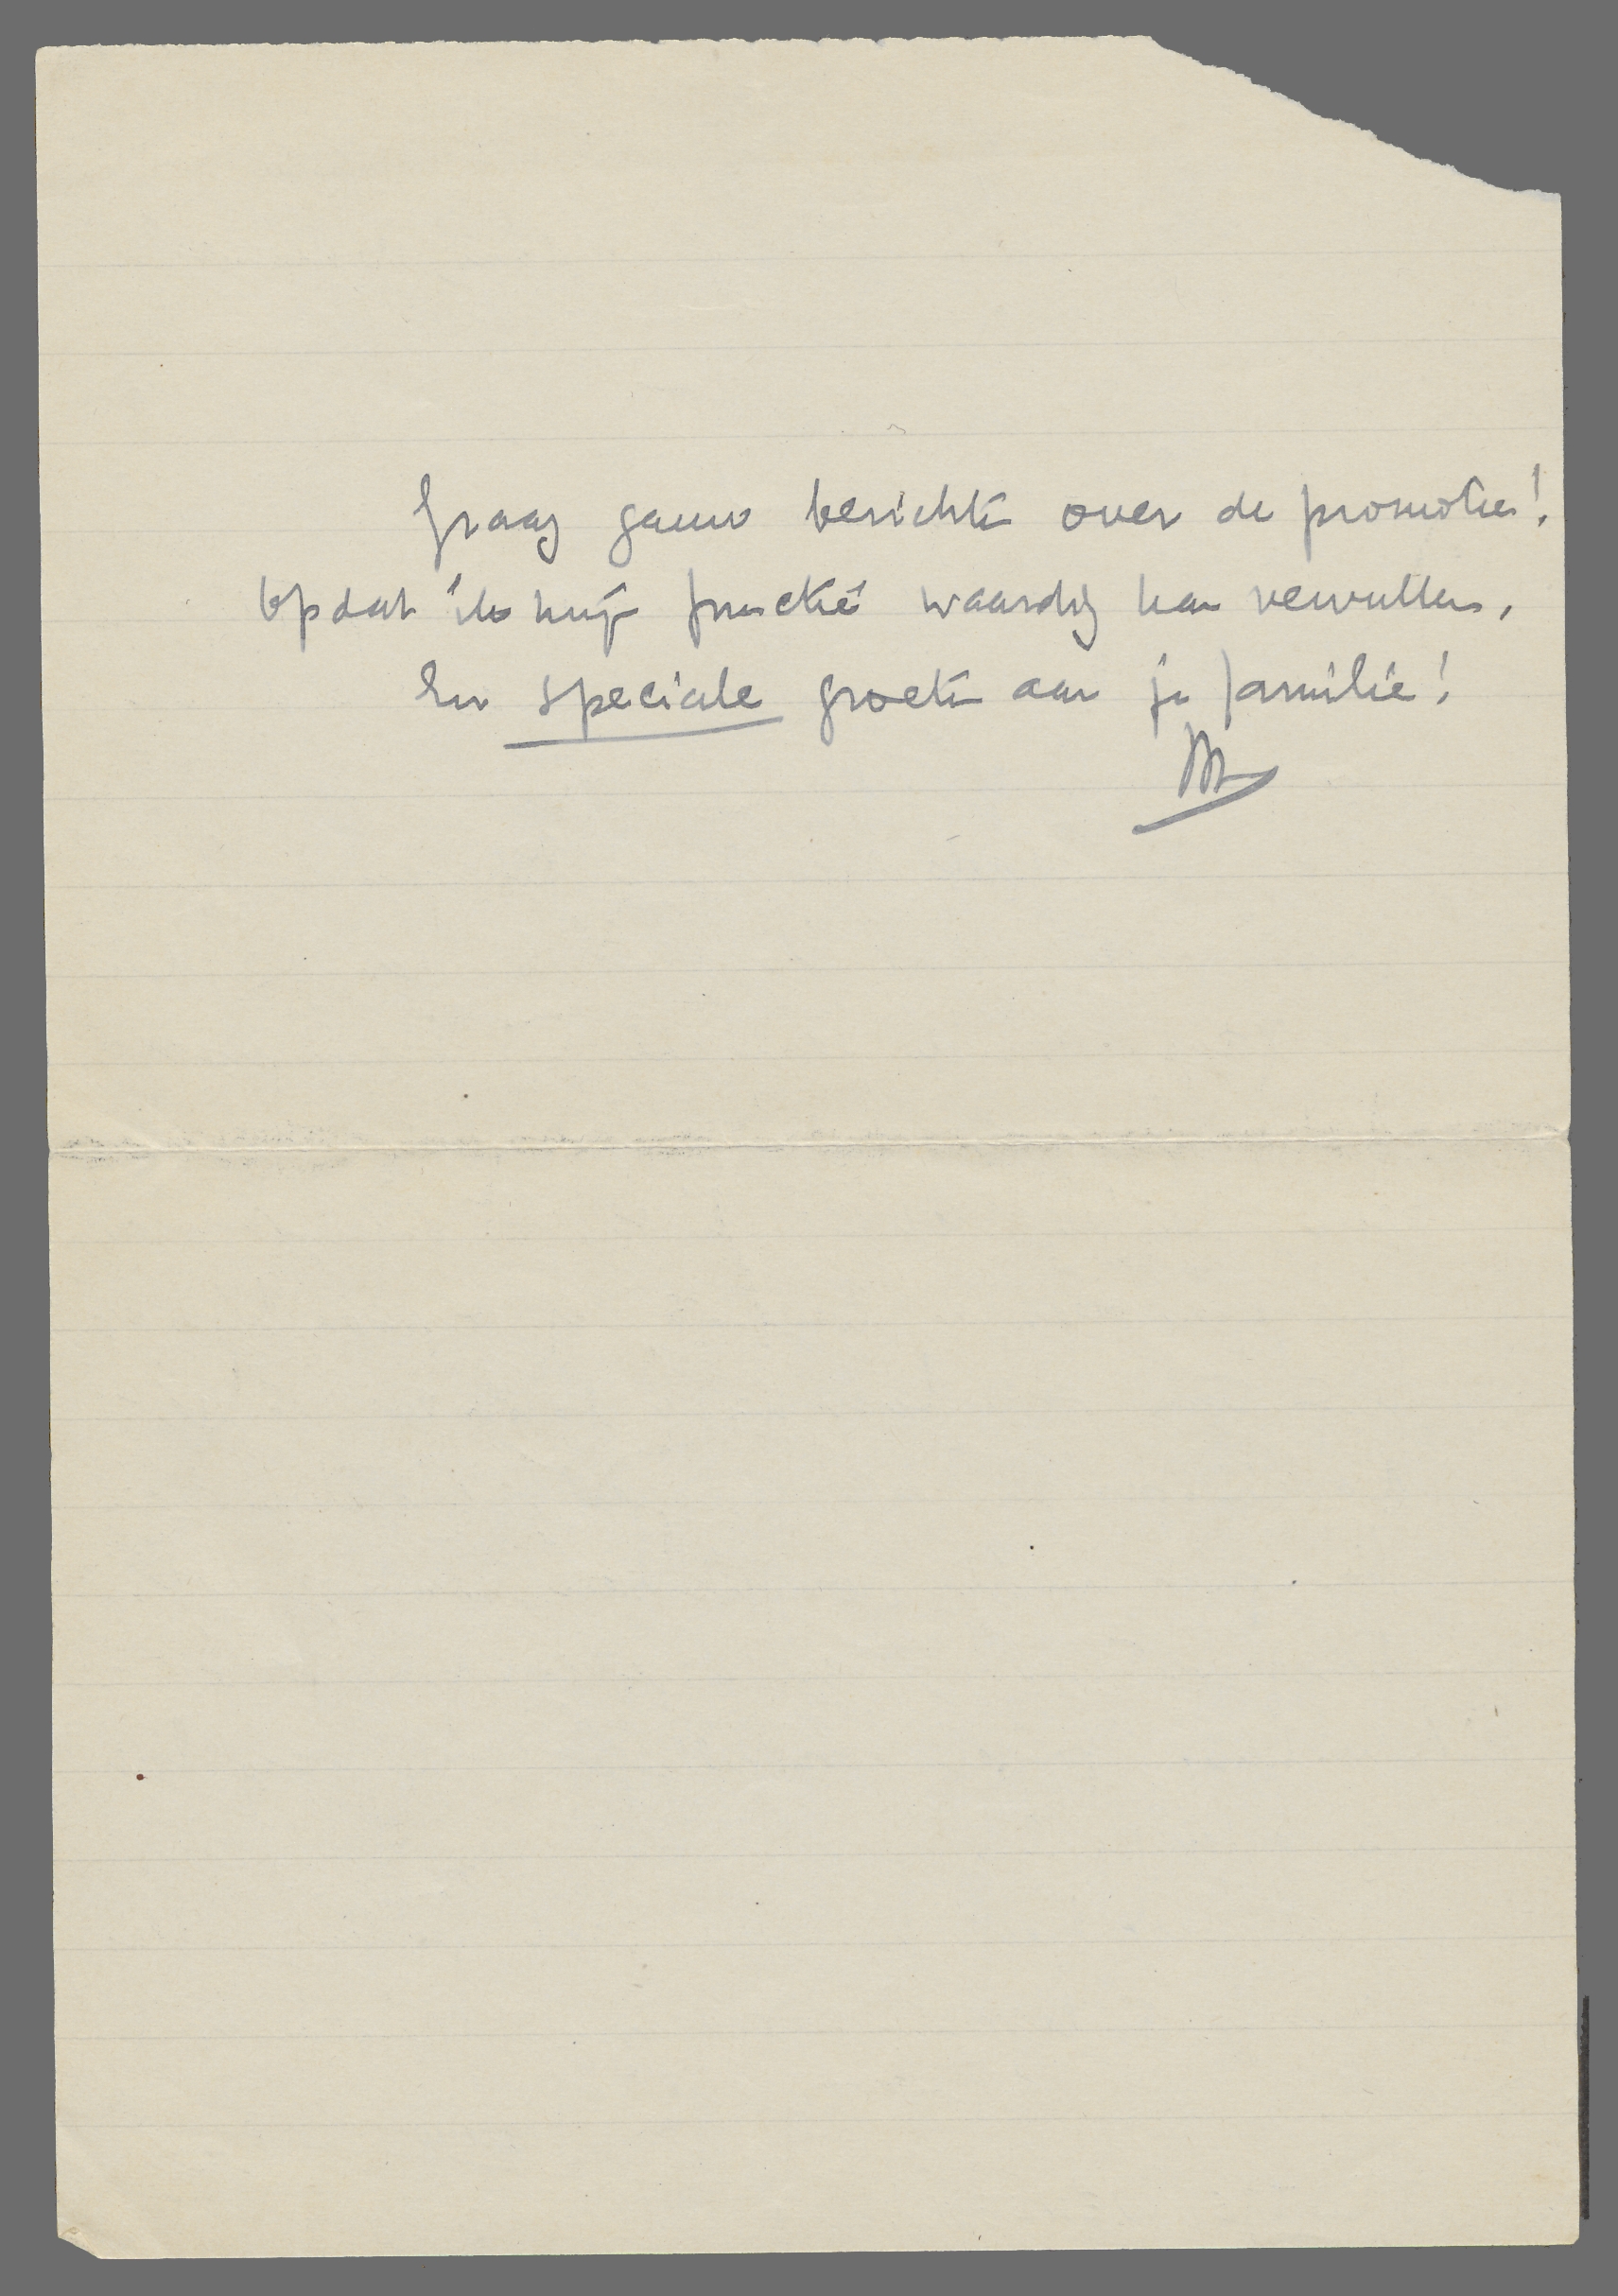 Graag gauw berichten over de promotie!
Opdat ik mijn functie waardig kan vervullen.
En speciale groeten aan je familie!
M